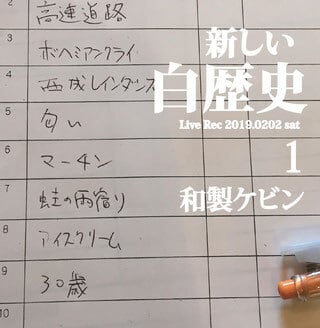 2 高速道路
3 ボヘミアンクライ
4 西成レインダンス
5 匂い
6 マーチン
7 蛙の雨宿り
8 アイスクリーム
9 30歳
10
新しい
白歴史
Live Rec 2019.0202 sat
1
和製ケビン